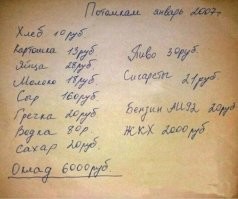 Потомкам январь 2007г
Хлеб 10руб
Картошка 13руб
Яйца 28руб.
Молоко 18руб
Сыр 160руб
Гречка 20руб
Водка 80р
сахар 20руб.
Оклад 6000руб.
Пиво 30руб.
Сигареты 21руб
Бензин АИ92 20руб
ЖКХ 2000руб